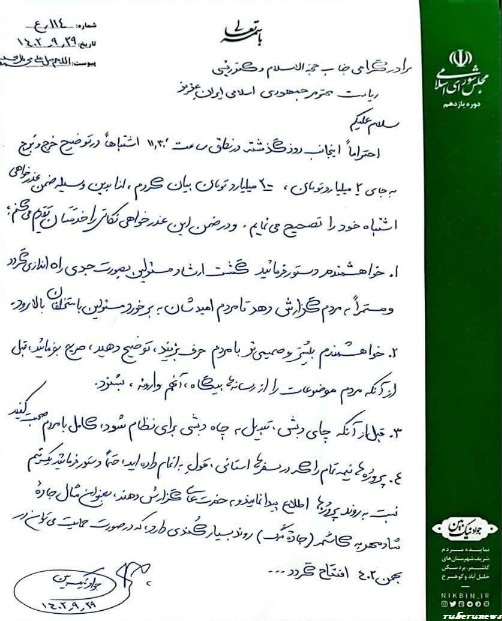 باسمه تعالی
شماره: ۱۱۴/ع
تاریخ: ۱۴۰۲،۹،۲۹
پیوست:
مجلس شورای اسلامی
دوره یازدهم
برادر گرامی جناب حجة‌الاسلام دکتر رئیسی
ریاست محترم جمهوری اسلامی ایران عزیز
سلام علیکم
احتراماً اینجانب روز گذشته در نطق ساعت ۱۱،۳۰ اشتباهاً در توضیح
به جای ۲ میلیارد تومان، ۲۰۰ میلیارد تومان بیان کردم، لذا بدین وسیله ضمن عذرخواهی
اشتباه خود را تصحیح می نمایم. و در ضمن این عذرخواهی نکاتی را خدمتتان تقدیم می کنم؛
۱. خواهشمندم دستور فرمائید گشت ارشاد مسئولین بصورت جدی راه اندازی گردد
و مستمراً به مردم گزارش دهد تا مردم امیدشان به برخورد مسئولین با متخلفان بالا رود.
۲. خواهشمندم بیشتر و صمیمی تر با مردم حرف بزنید، توضیح دهید، صریح بفرمائید، قبل
از آنکه مردم موضوعات را از رسانه‌ها بیگانه، آنهم وارونه، بشنوند.
۳. قبل از آنکه چای دبش، تبدیل به چاه دبشی برای نظام شود، کامل با مردم صحبت کنید
۴. پروژه‌ها نیمه تمام را که در سفرها استانی، قول به اتمام داده اید، حتماً دستور فرمائید تیم
نسبت به روند پروژه‌ها اطلاع پیدا نمایند و به حضرتعالی گزارش دهند، بعنوان مثال جاده
شادمهر به کاشمر (جاده مرگ) روند بسیار کندی دارد، که در صورت حمایت می توان در
بهمن ۴۰۲ افتتاح گردد...
جواد نیک‌بین
۱۴۰۲،۹،۲۹
جواد نیک‌بین
نماینده مردم
شریف شهرستان‌های
کاشمر، بردسکن
خلیل آباد و کوهسرخ
NIKBIN.IR
ruberunews